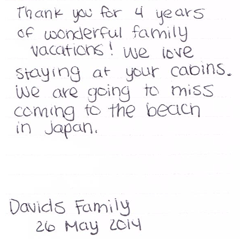 Thank you for 4 years
of wonderful family
vacations! We love
staying at your cabins.
We are going to miss
coming to the beach
in Japan.
Davids Family
26 May 2014